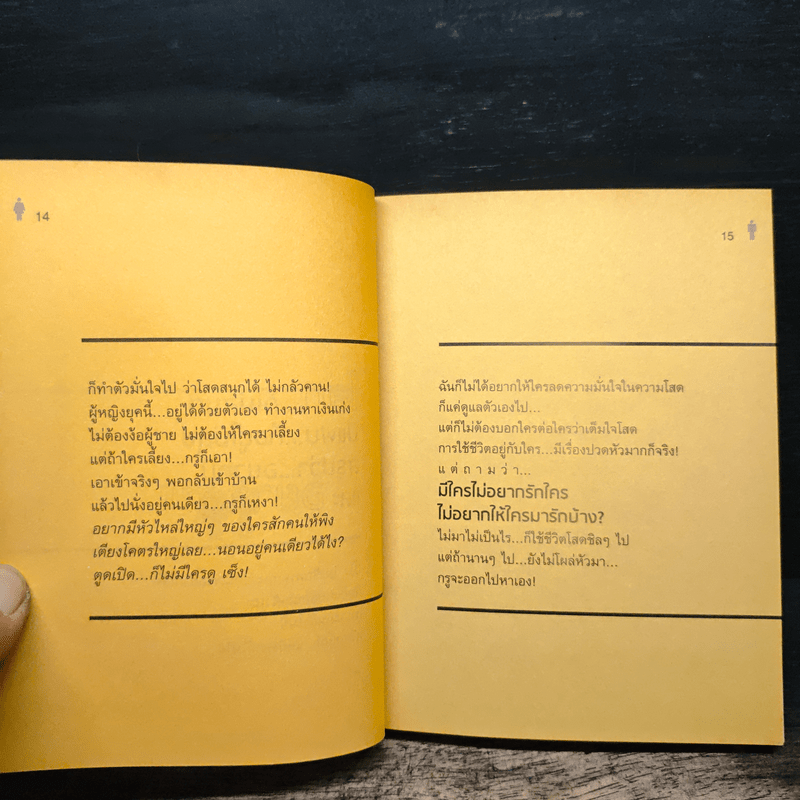 14
ก็ทำตัวมั่นใจไป ว่าโสดสนุกได้ ไม่กลัวคาน!
ผู้หญิงยุคนี้...อยู่ได้ด้วยตัวเอง ทำงานหาเงินเก่ง
ไม่ต้องง้อผู้ชาย ไม่ต้องให้ใครมาเลี้ยง
แต่ถ้าใครเลี้ยง...กรูก็เอา!
เอาเข้าจริงๆ พอกลับเข้าบ้าน
แล้วไปนั่งอยู่คนเดียว...กรูก็เหงา!
อยากมีหัวไหล่ใหญ่ๆ ของใครสักคนให้พิง
เตียงโคตรใหญ่เลย...นอนอยู่คนเดียวได้ไง?
ตูดเปิด...ก็ไม่มีใครดู เซ็ง!
15
ฉันก็ไม่ได้อยากให้ใครลดความมั่นใจในความโสด
ก็แค่ดูแลตัวเองไป...
แต่ก็ไม่ต้องบอกใครต่อใครว่าเต็มใจโสด
การใช้ชีวิตอยู่กับใคร...มีเรื่องปวดหัวมากก็จริง!
แ ต่ ถ า ม ว่ า...
มีใครไม่อยากรักใคร
ไม่อยากให้ใครมารักบ้าง?
ไม่มาไม่เป็นไร...ก็ใช้ชีวิตโสดชิลๆ ไป
แต่ถ้านานๆ ไป...ยังไม่โผล่หัวมา...
กรูจะออกไปหาเอง!